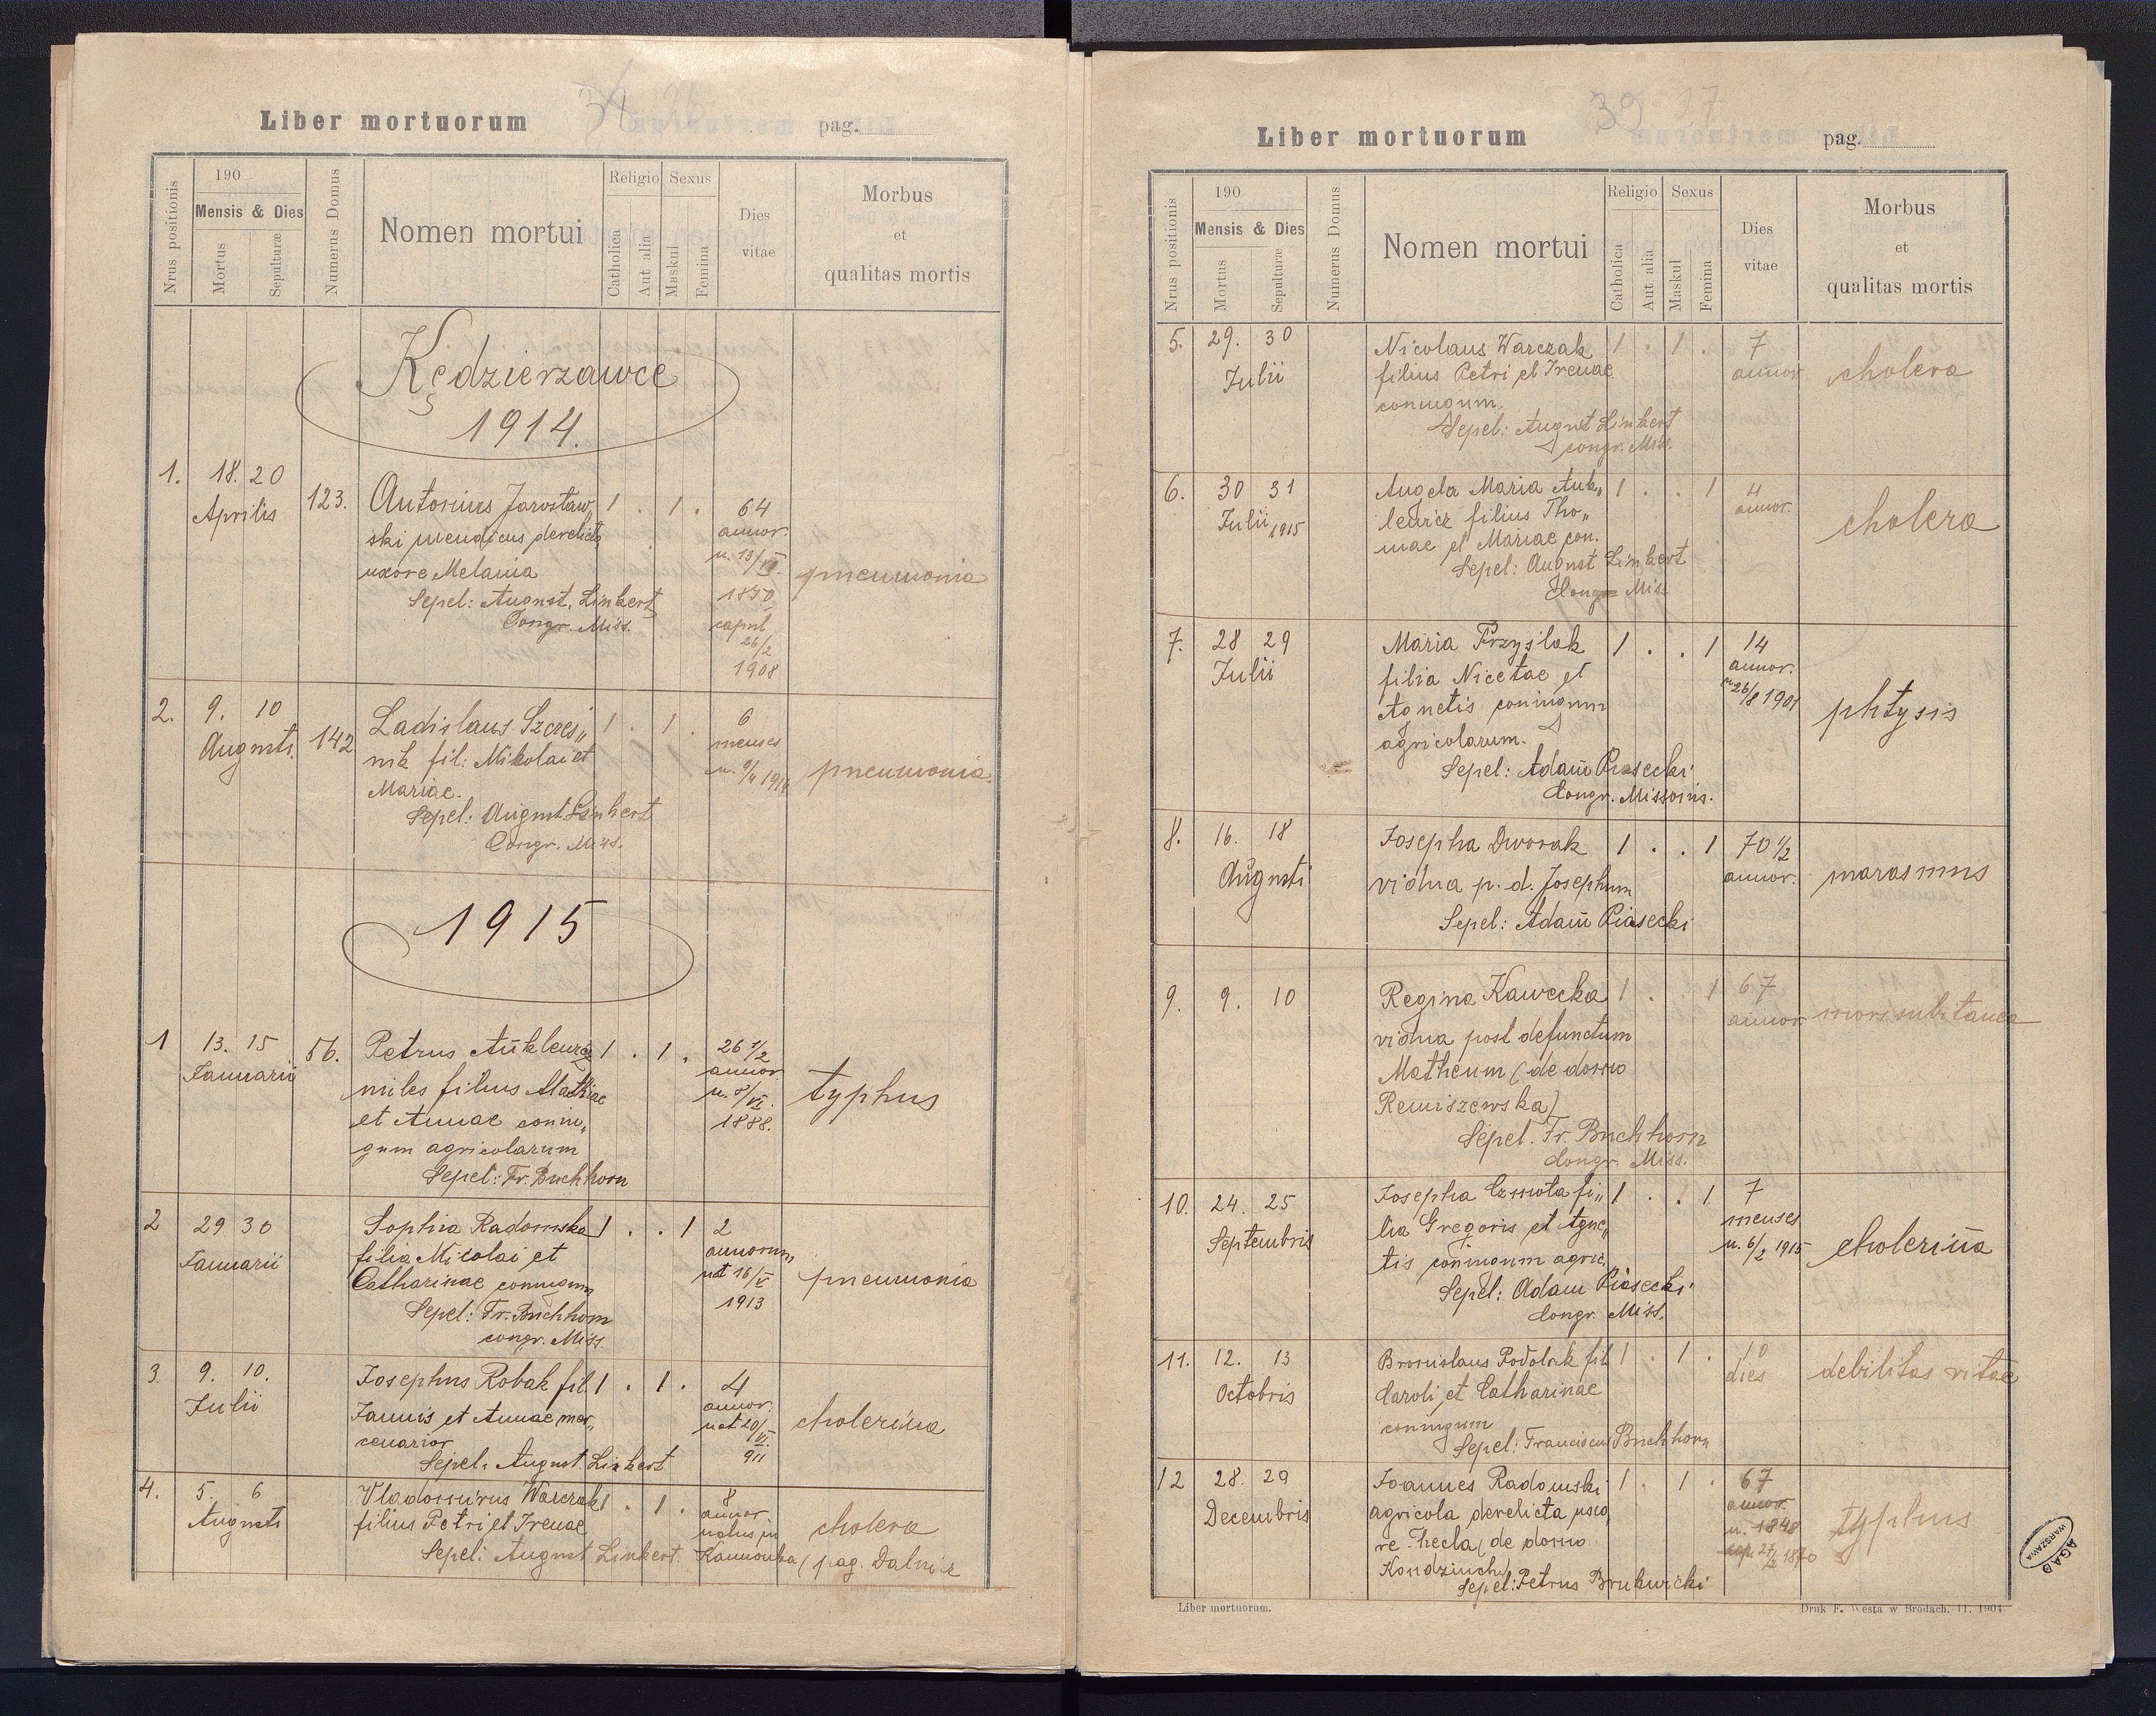 Liber mortuorum
pag.
Nrus positionis
190
Mensis & Dies
Mortus
Sepulturæ
Numerus Domus
Nomen mortui
Religio
Catholica
Aut alia
Sexus
Maskul
Femina
Dies
vitae
Morbus
et
qualitas mortis
Kędzierzawce
1914.
1. 18. 20 Aprilis 123.
Antonius Jarosław„ 1 . 1 . 64
ski mendicus derelicta annor.
uxore Melania
Sepel: August. Linbert
Congr. Miss.
n. 13/VI. 1850
copul
26/2
1908
pneumonia
2. 9. 10 Augusti 142
Ladislaus Szczes„ 1 . 1 . 6
nik fil: Mikolai et menses
Mariae. n. 9/4 1914
Sepel: August Linbert
Congr. Miss.
pneumonia.
1915
1 13. 15 Januarii 56.
Petrus Auklewicz 1 . 1 . 26 1/2
miles filius Mathiae annor
et Annae coniu„ n. 8/VI.
gum agricolarum 1888.
Sepel: Fr. Buchhorn
typhus
2 29 30 Januarii
Sophia Radomska 1 . . 1 2
filia Nicolai et annorum
Catharinae coniugum nat 16/V
Sepel: Fr. Buchhorn 1913
congr. Miss.
pneumonia
3. 9. 10. Julii
Josephus Robak fil 1 . 1 . 4
Jannis et Annae mer„ annor.
cenarior nat 20/VI. 911
Sepel. August Linbert
cholerina
4. 5. 6 Augusti
Vladomirus Warczak 1 . 1 . 8
filius Petri et Irenae annor
Sepel: August Linbert natus in
Kamonka (pag. Dalnicz
cholera
Liber mortuorum
39 27
pag.
Nrus positionis
190
Mensis & Dies
Mortus
Sepulturæ
Numerus Domus
Nomen mortui
Religio
Catholica
Aut alia
Sexus
Maskul
Femina
Dies
vitae
Morbus
et
qualitas mortis
5. 29. 30 Julii
Nicolaus Warczak 1 . 1 . 7
filius Petri et Irenae annor
coniugum.
Sepel: August Linbert
congr. Miss.
cholera
6. 30 31 Julii 1915
Angela Maria Auk„ 1 . . 1 4
lewicz filius Tho„ annor.
mae et Mariae con.
Sepel: August Linbert
Congr Miss
cholera
7. 28 29 Julii
Maria Przyslak 1 . . 1 14
filia Nicetae et annor.
Agnetis coniugum n 26/8 1901
agricolarum.
Sepel: Adam Piasecki
Congr. Missionis.
phtysis
8. 16. 18 Augusti
Josepha Dworak 1 . . 1 70 1/2
vidua p. d. Josephum annor.
Sepel: Adam Piasecki
marasmus
9. 9. 10
Regina Kawecka 1 . . 1 67
vidua post defunctum annor
Matheum (de domo
Remiszewska)
Sepel. Fr. Buchhorn
Congr. Miss.
mors subitanea
10. 24. 25 Septembris
Josepha Czmota fi„ 1 . . 1 7
lia Gregoris et Agne„ menses
tis coniugum agric. n. 6/2 1915
Sepel: Adam Piasecki
Congr. Miss.
cholerina
11. 12. 13 Octobris
Bronislaus Podolak fil 1 . 1 . 10
Caroli et Catharinae dies
coniugum
Sepel: Franciscus Buchhorn
debilitas vitae
12 28. 29 Decembris
Joannes Radomski 1 . 1 . 67
agricola derelicta uxo„ annor.
re Thecla (de domo n. 1848
Kondziuch)
Sepel: Petrus Brukwicki
typhus
Liber mortuorum.
Druk F. Westa w Brodach. 11. 1904.
AGAD
WARSZAWA